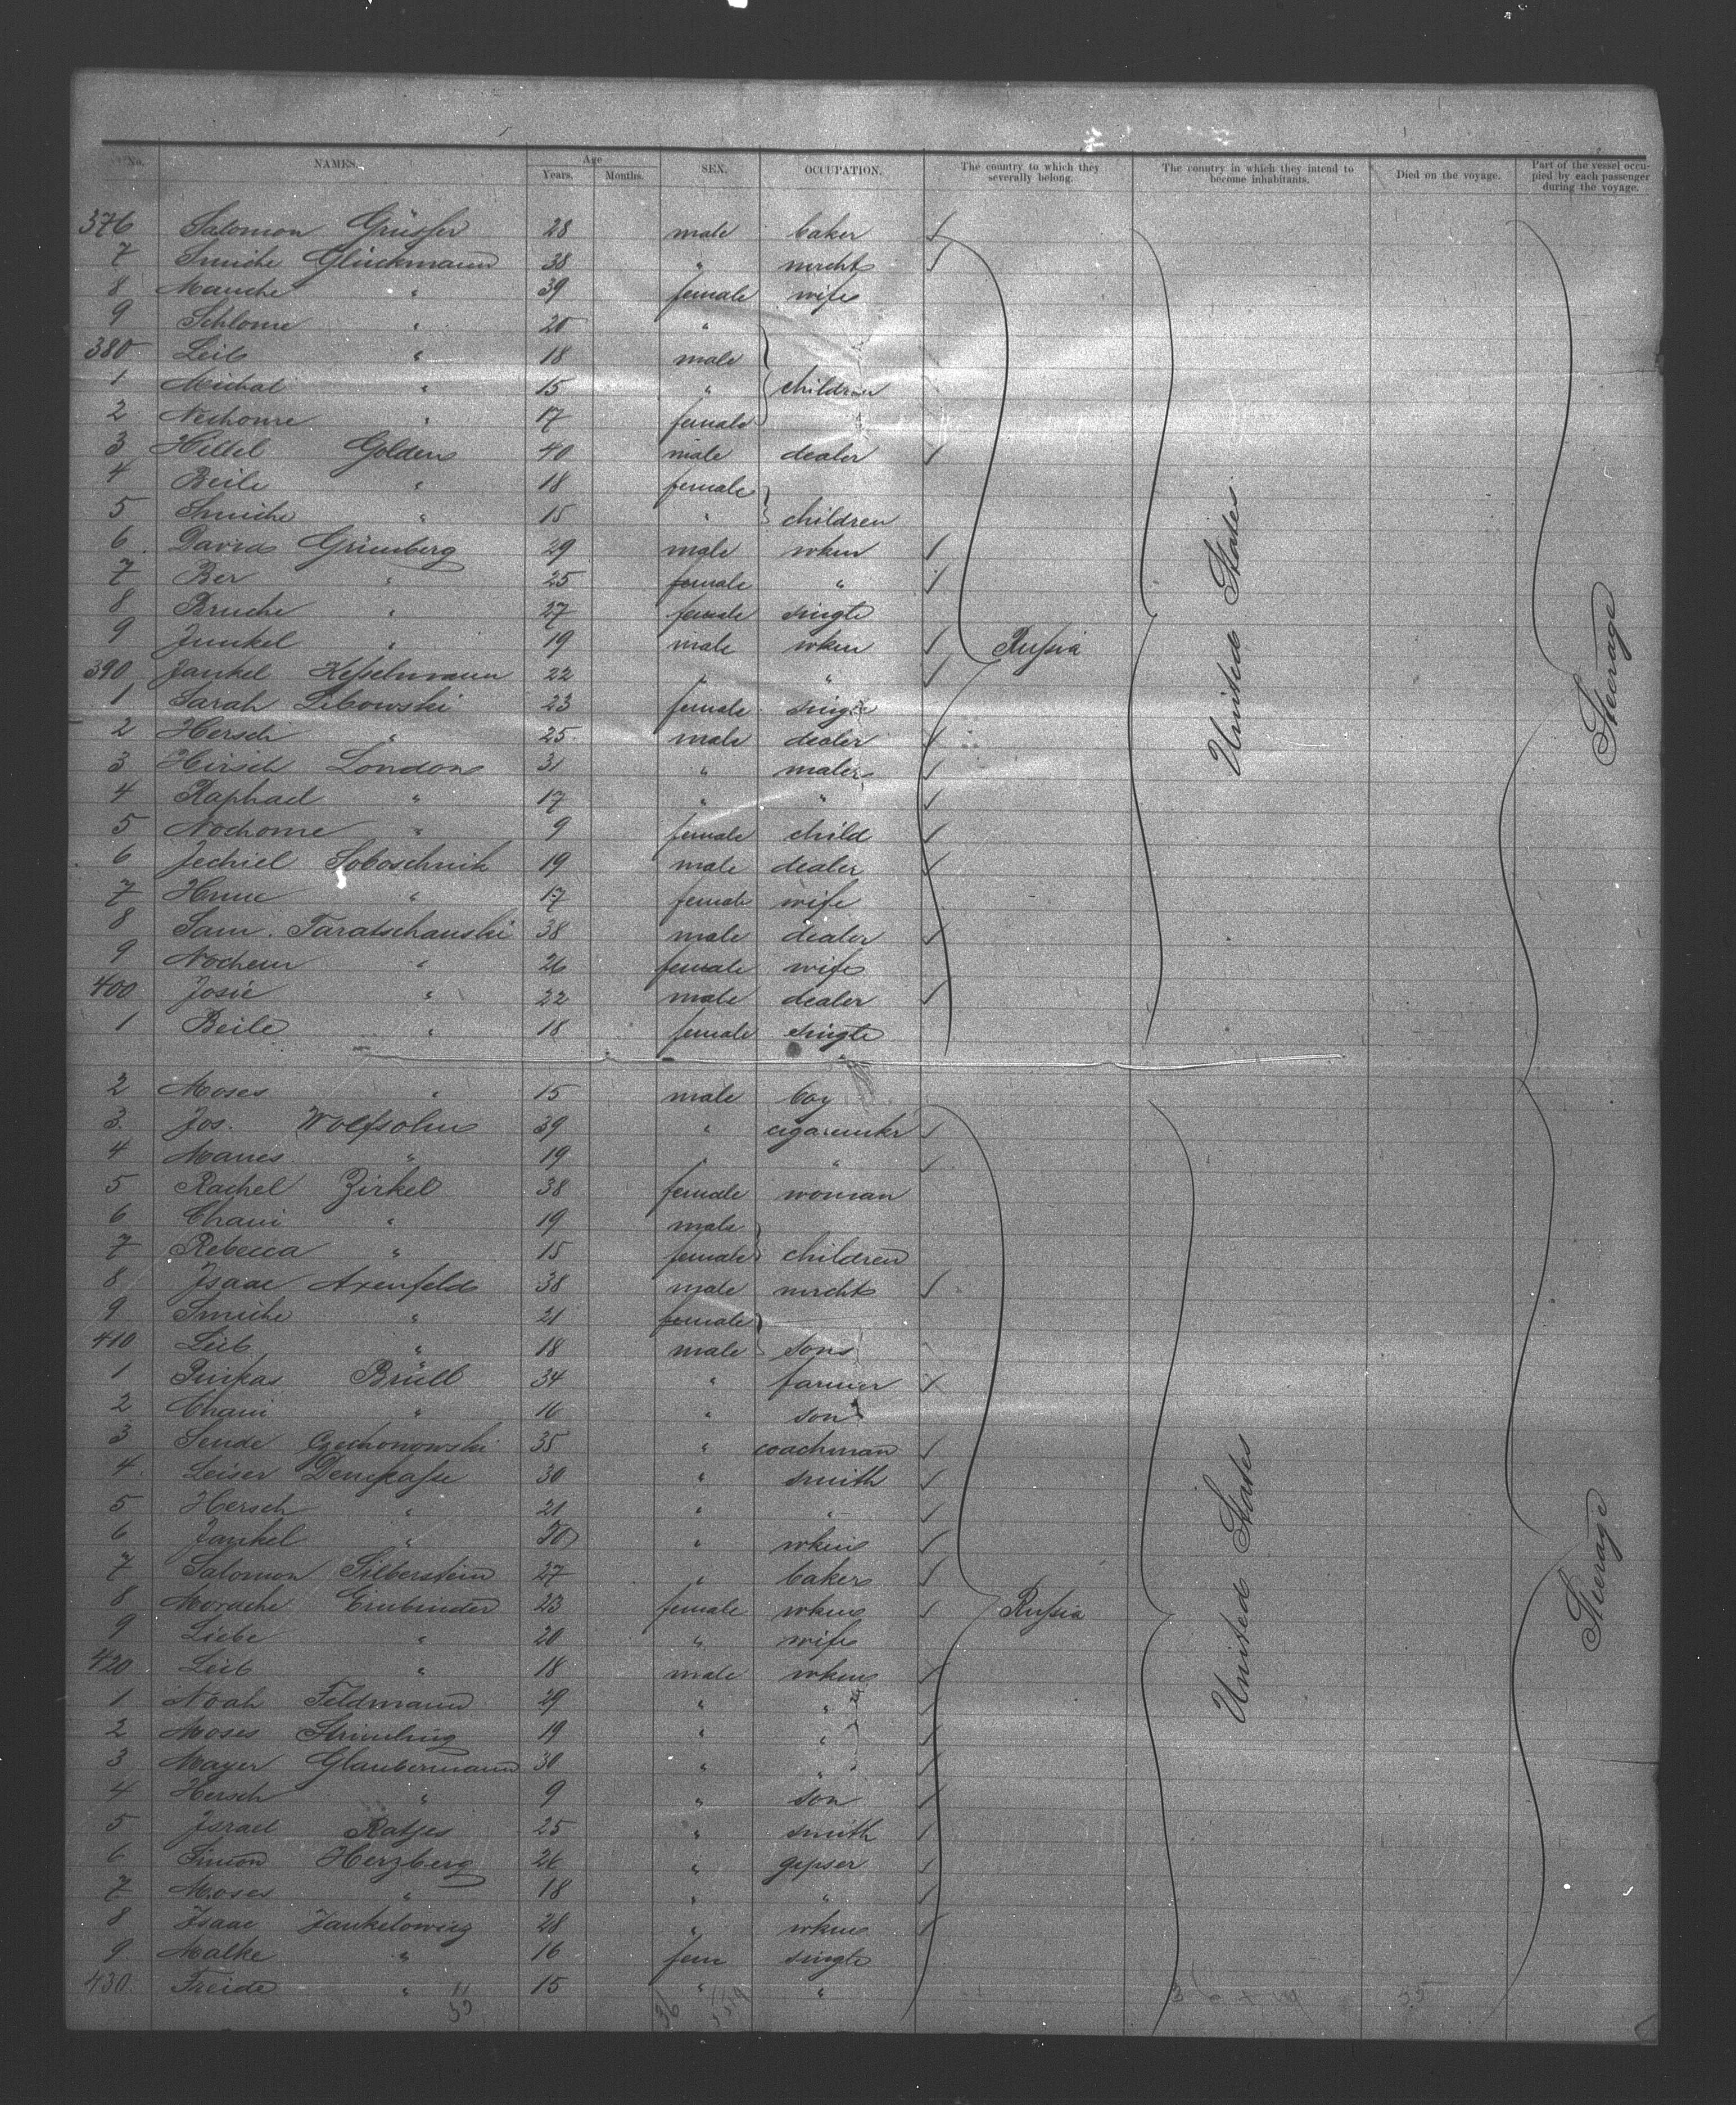 No. NAMES. Age Years. Months. SEX. OCCUPATION. The country to which they severally belong. The country in which they intend to become inhabitants. Died on the voyage. Part of the vessel occupied by each passenger during the voyage.
376 Salomon Grüsser 28 male baker
7 Smiche Glückmann 38 " mrcht
8 Mausche " 39 female wife
9 Schlome " 20 "
380 Leib " 18 male
1 Michal " 15 " children
2 Nechome " 17 female
3 Hillel Golden 40 male dealer
4 Beile " 18 female
5 Smiche " 15 " children
6 David Grünberg 29 male wkm
7 Ber " 25 female "
8 Bruche " 27 female single
9 Junkel " 19 male wkm Russia
390 Jankel Kesselmann 22 " "
1 Sarah Libowski 23 female single
2 Hersch " 25 male dealer United States
3 Hirsch London 31 " maler Steerage
4 Raphael " 17 " "
5 Nochome " 9 female child
6 Jechiel Soboschnik 19 male dealer
7 " 17 female wife
8 Sam. Taratschanski 38 male dealer
9 Nochem " 26 female wife
400 Josie " 22 male dealer
1 Beile " 18 female single
2 Moses " 15 male boy
3. Jos. Wolfsohn 39 " cigarmkr
4 Manes " 19 " "
5 Rachel Zirkel 38 female woman
6 Chaim " 19 male
7 Rebecca " 15 female children
8 Isaac Axenfeld 38 male mrcht
9 Smiche " 21 female
410 Leib " 18 male sons
1 Pinkas Brüll 34 " farmer
2 Chaim " 16 " son
3 Sende Czechonowski 35 " coachman
4. Leiser 30 " smith
5 Hersch " 21 " "
6 Jankel " " wkm
7 Salomon Silberstein 27 " baker
8 Mordche Einbinder 23 female wkm Russia
9 Liebe " 20 " wife
420 Leib " 18 male wkm
1 Noah Feldmann 29 " " United States
2 Moses Strimling 19 " " Steerage
3 Mayer Glaubermann 30 " "
4 Hersch " 9 " son
5 Israel Ratjes 25 " smith
6 Simon Herzberg 26 " gipser
7 Moses " 18 " "
8 Isaac Jankelowicz 28 " wkm
9 Malke " 16 fem single
430. Freide " 15 " "
55